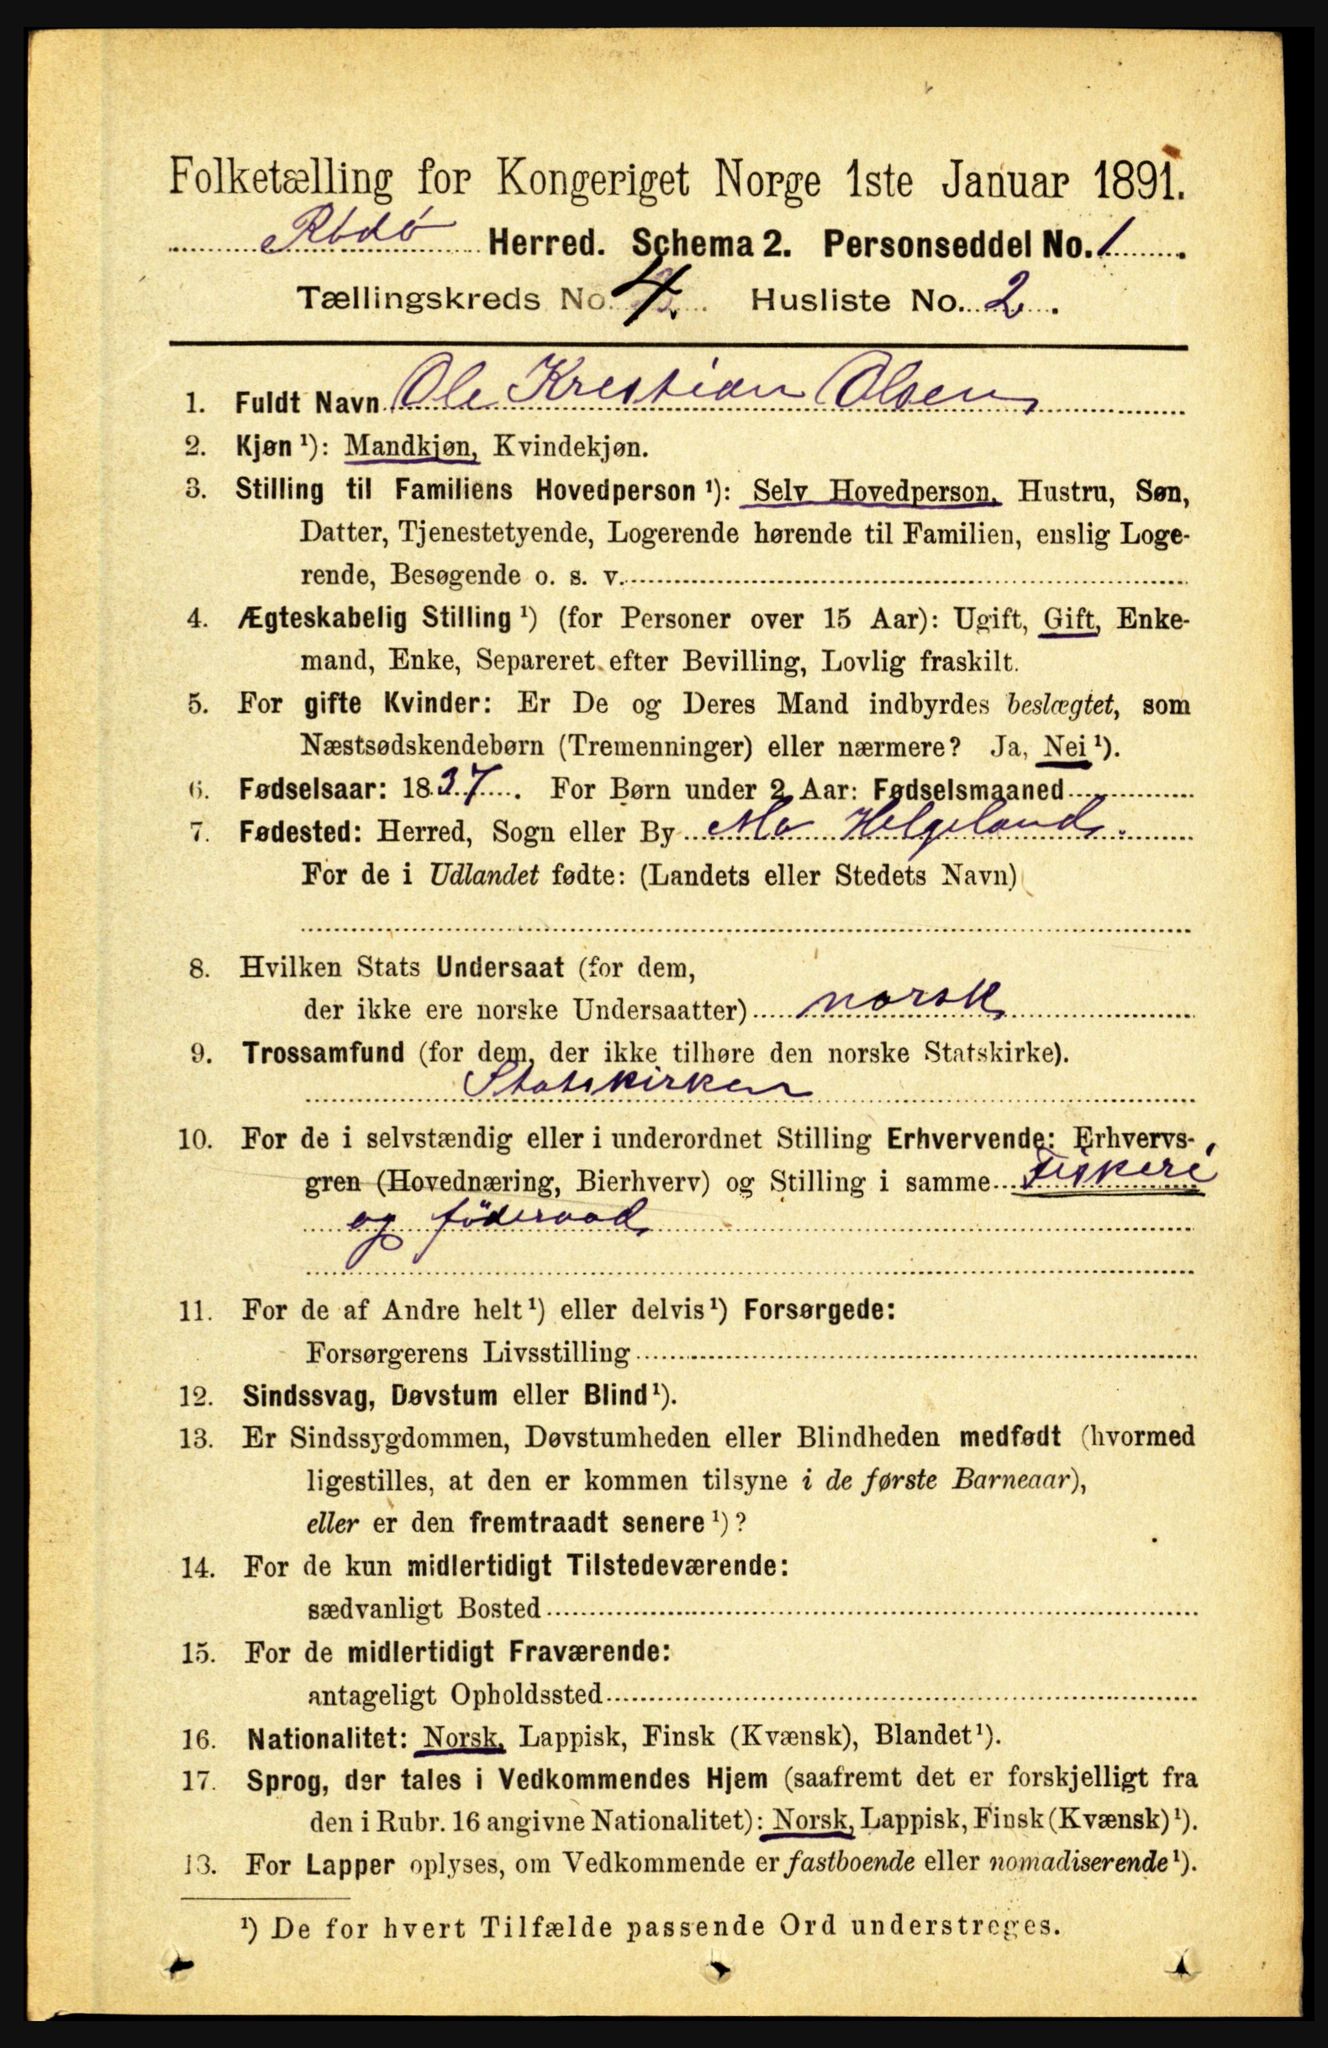 Folketælling for Kongeriget Norge 1ste Januar 1891.
Rödö Herred. Schema 2. Personseddel No. 1.
Tællingskreds No. 4. Husliste No. 2.
1. Fuldt Navn Ole Krestian Olsen
2. Kjøn¹): Mandkjøn, Kvindekjøn.
3. Stilling til Familiens Hovedperson¹): Selv Hovedperson, Hustru, Søn,
Datter, Tjenestetyende, Logerende hørende til Familien, enslig Loge-
rende, Besøgende o. s. v.
4. Ægteskabelig Stilling¹) (for Personer over 15 Aar): Ugift, Gift, Enke-
mand, Enke, Separeret efter Bevilling, Lovlig fraskilt.
5. For gifte Kvinder: Er De og Deres Mand indbyrdes beslægtet, som
Næstsødskendebørn (Tremenninger) eller nærmere? Ja, Nei¹).
6. Fødselsaar: 1837. For Børn under 2 Aar: Fødselsmaaned
7. Fødested: Herred, Sogn eller By Mo Helgeland.
For de i Udlandet fødte: (Landets eller Stedets Navn)
8. Hvilken Stats Undersaat (for dem,
der ikke ere norske Undersaatter) norsk
9. Trossamfund (for dem, der ikke tilhøre den norske Statskirke).
Statskirken
10. For de i selvstændig eller i underordnet Stilling Erhvervende: Erhvervs-
gren (Hovednæring, Bierhverv) og Stilling i samme Fiskeri
og föderaad
11. For de af Andre helt¹) eller delvis¹) Forsørgede:
Forsørgerens Livsstilling
12. Sindssvag, Døvstum eller Blind¹).
13. Er Sindssygdommen, Døvstumheden eller Blindheden medfødt (hvormed
ligestilles, at den er kommen tilsyne i de første Barneaar),
eller er den fremtraadt senere¹)?
14. For de kun midlertidigt Tilstedeværende:
sædvanligt Bosted
15. For de midlertidigt Fraværende:
antageligt Opholdssted
16. Nationalitet: Norsk, Lappisk, Finsk (Kvænsk), Blandet¹).
17. Sprog, der tales i Vedkommendes Hjem (saafremt det er forskjelligt fra
den i Rubr. 16 angivne Nationalitet): Norsk, Lappisk, Finsk (Kvænsk)¹).
13. For Lapper oplyses, om Vedkommende er fastboende eller nomadiserende¹).
¹) De for hvert Tilfælde passende Ord understreges.